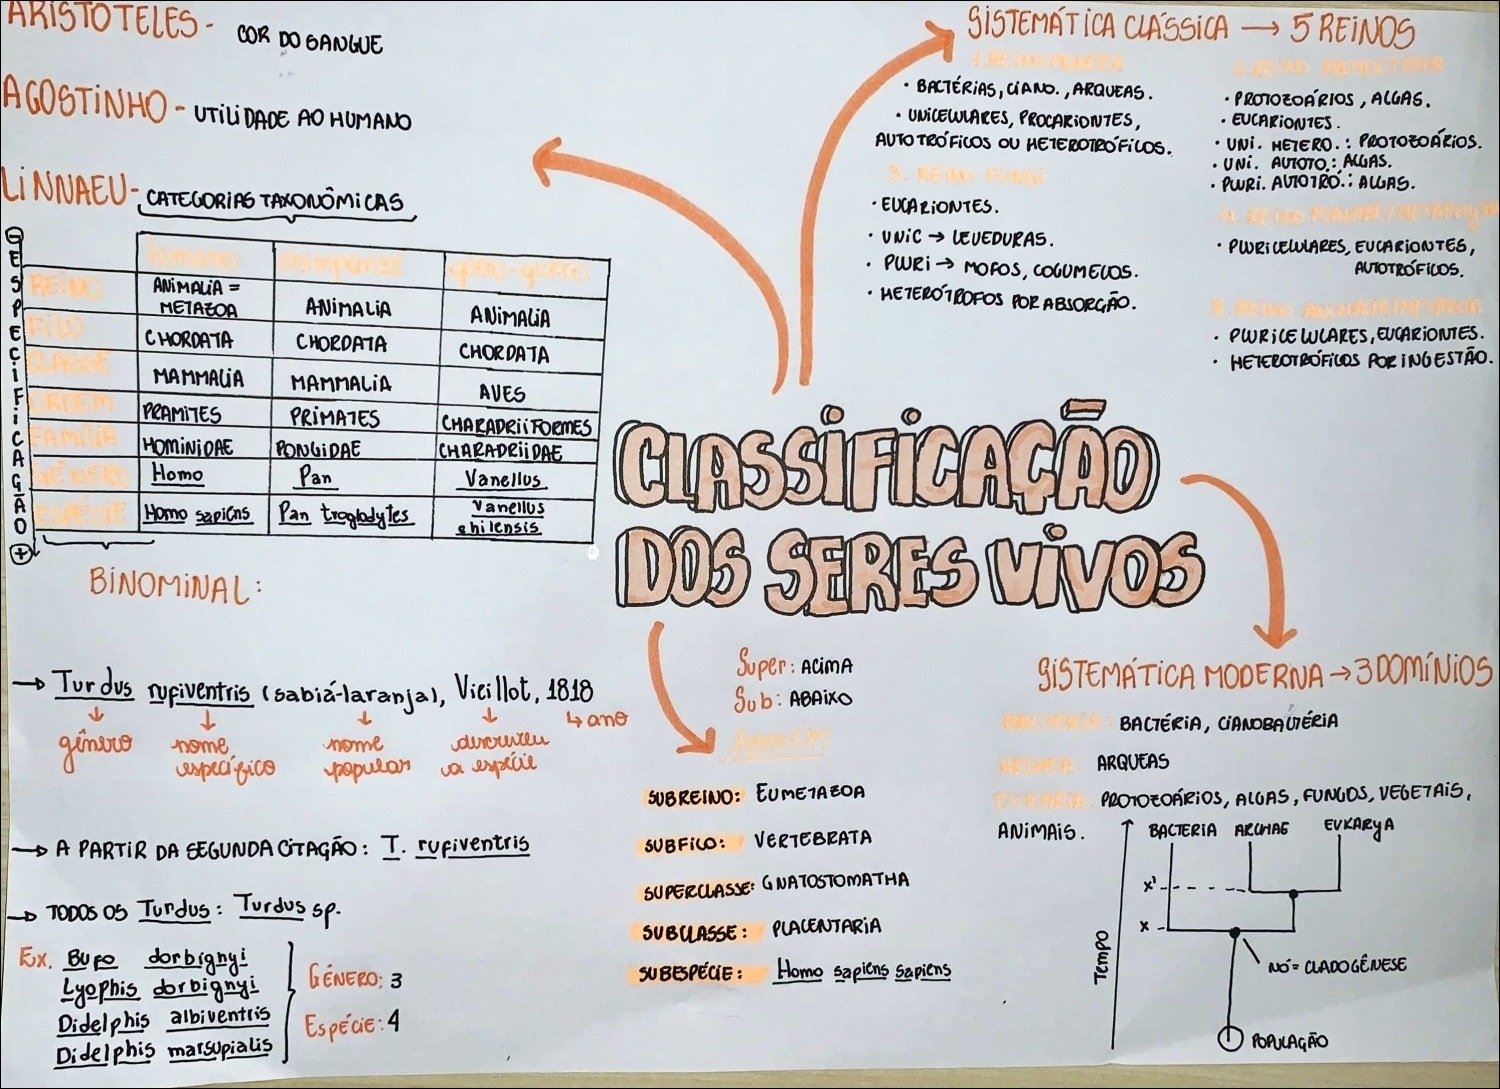 ARISTÓTELES - COR DO SANGUE
AGOSTINHO - UTILIDADE AO HUMANO
LINNAEU - CATEGORIAS TAXONÔMICAS
- ESPECIFICAÇÃO +
humano chimpanzé quero-quero
REINO ANIMALIA = METAZOA ANIMALIA ANIMALIA
FILO CHORDATA CHORDATA CHORDATA
CLASSE MAMMALIA MAMMALIA AVES
ORDEM PRAMITES PRIMATES CHARADRIIFORMES
FAMÍLIA HOMINIDAE PONGIDAE CHARADRIIDAE
GÊNERO Homo Pan Vanellus
ESPÉCIE Homo sapiens Pan troglodytes Vanellus chilensis
BINOMINAL:
→ Turdus rufiventris (sabiá-laranja), Vieillot, 1818
↓ ↓ ↓ ↓ ↳ ano
gênero nome nome descreveu
específico popular a espécie
→ A PARTIR DA SEGUNDA CITAÇÃO: T. rufiventris
→ TODOS OS Turdus: Turdus sp.
Ex. Bufo dorbignyi
Lyophis dorbignyi
Didelphis albiventris
Didelphis marsupialis
GÊNERO: 3
ESPÉCIE: 4
CLASSIFICAÇÃO
DOS SERES VIVOS
SISTEMÁTICA CLÁSSICA → 5 REINOS
1. REINO MONERA
• BACTÉRIAS, CIANO., ARQUEAS.
• UNICELULARES, PROCARIONTES,
AUTOTRÓFICOS OU HETEROTRÓFICOS.
2. REINO PROTOCTISTA
• PROTOZOÁRIOS, ALGAS.
• EUCARIONTES.
• UNI. HETERO.: PROTOZOÁRIOS.
• UNI. AUTOTO.: ALGAS.
• PLURI. AUTOTRÓ.: ALGAS.
3. REINO FUNGI
• EUCARIONTES.
• UNIC → LEVEDURAS.
• PLURI → MOFOS, COGUMELOS.
• HETERÓTROFOS POR ABSORÇÃO.
4. REINO PLANTAE/METAPHYTA
• PLURICELULARES, EUCARIONTES,
AUTOTRÓFICOS.
5. REINO ANIMALIA/METAZOA
• PLURICELULARES, EUCARIONTES.
• HETEROTRÓFICOS POR INGESTÃO.
Super: ACIMA
Sub: ABAIXO
SUBREINO: EUMETAZOA
SUBFILO: VERTEBRATA
SUPERCLASSE: GNATOSTOMATHA
SUBCLASSE: PLACENTARIA
SUBESPÉCIE: Homo sapiens sapiens
SISTEMÁTICA MODERNA → 3 DOMÍNIOS
BACTERIA: BACTÉRIA, CIANOBACTÉRIA
ARCHEA: ARQUEAS
EUKARIA: PROTOZOÁRIOS, ALGAS, FUNGOS, VEGETAIS,
ANIMAIS.
BACTERIA ARCHAE EUKARYA
X'
X
TEMPO
NÓ = CLADOGÊNESE
POPULAÇÃO